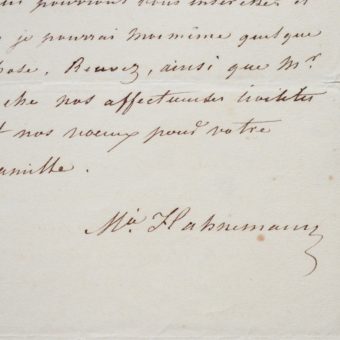 pourrions vous intéresser et
je pourrai moi même quelque
hose, Recevez, ainsi que Mr.
che nos affectueuses
t nos voeux pour votre
amille.
Mie Hahnemann